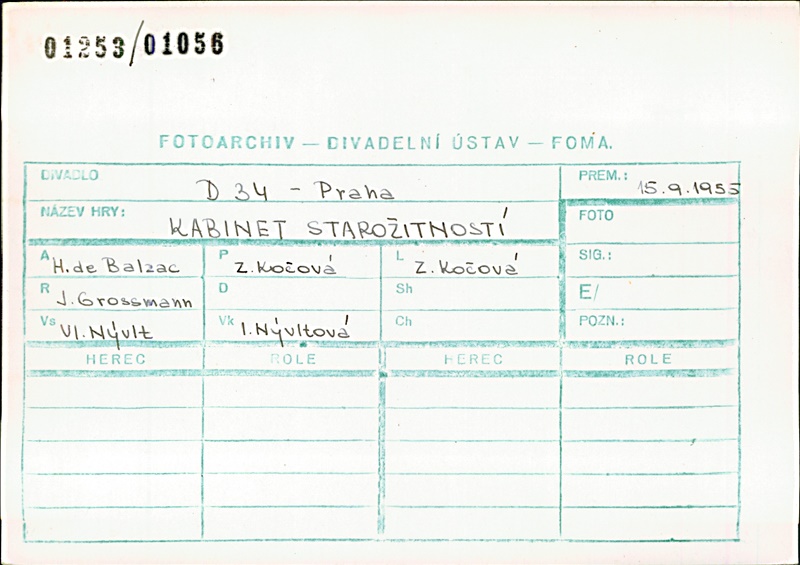 01253/01056
FOTOARCHIV — DIVADELNÍ ÚSTAV — FOMA.
DIVADLO D 34 - Praha PREM.: 15.9.1955
NÁZEV HRY: KABINET STAROŽITNOSTÍ FOTO
A H. de Balzac P Z. Kočová L Z. Kočová SIG.:
R J. Grossmann D Sh E/
Vs Vl. Nývlt Vk I. Nývltová Ch POZN.:
HEREC ROLE HEREC ROLE